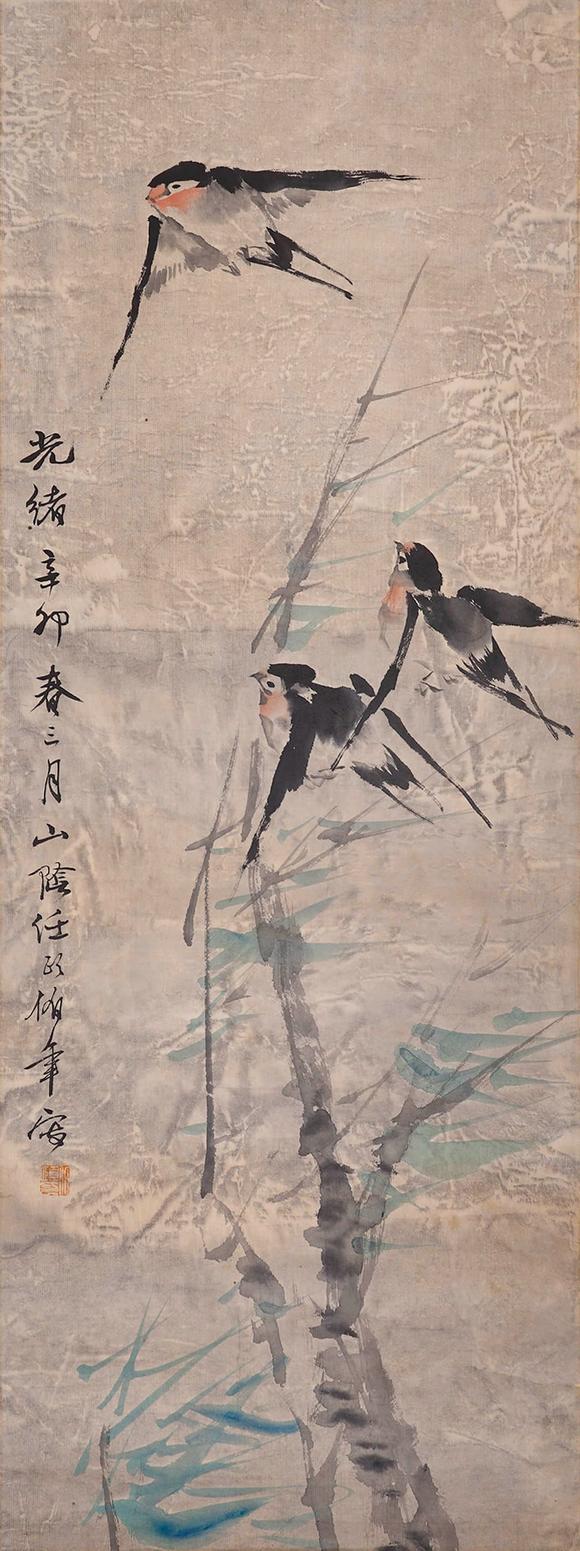 光緒辛卯春三月山陰任頤伯年寫